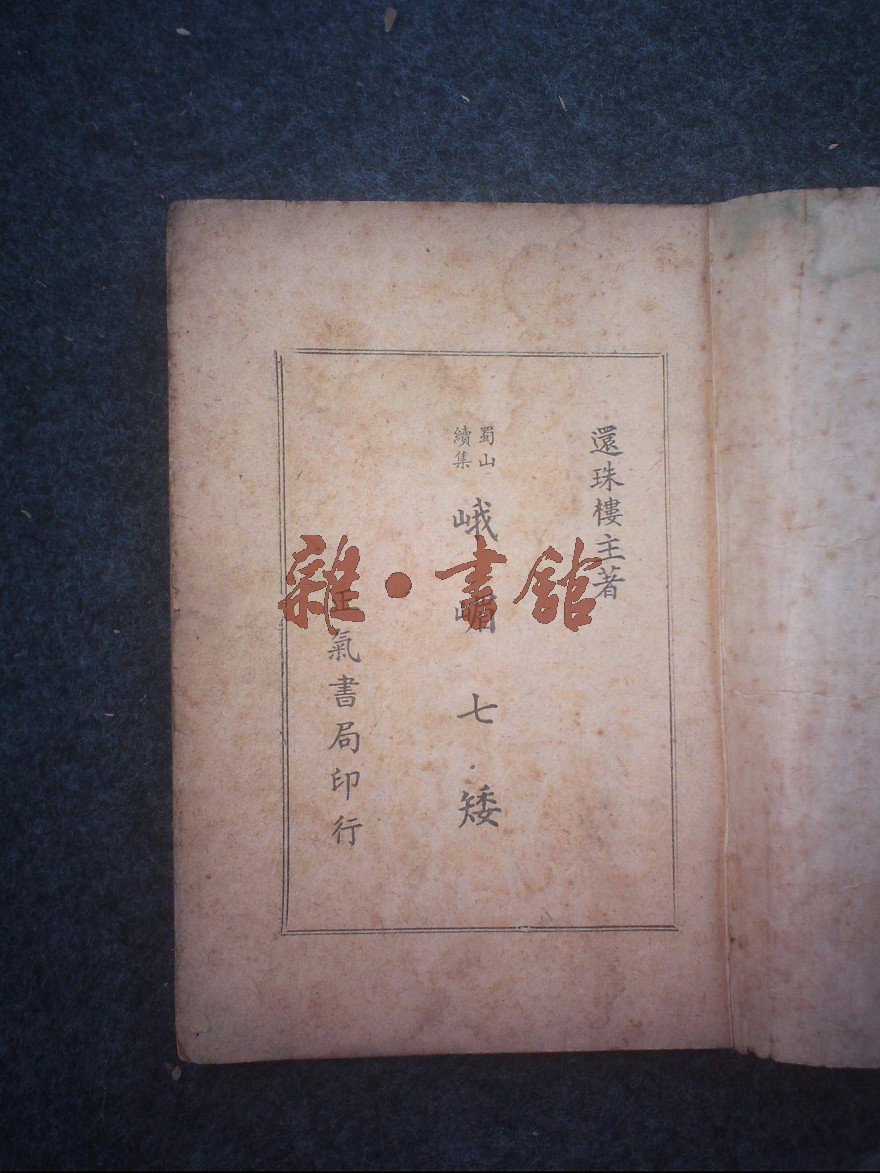 還珠樓主著
蜀山
續集
峨嵋七矮
正氣書局印行
雜·書館